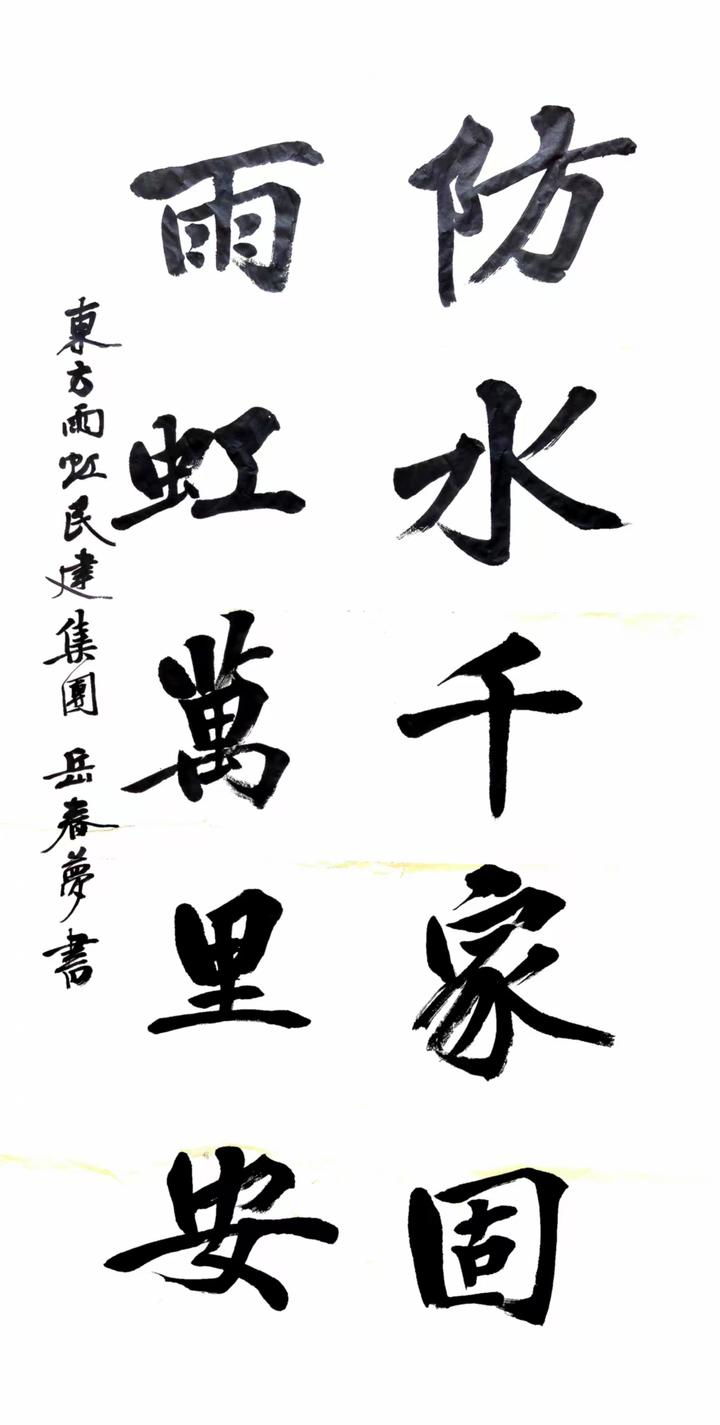 防水千家固
雨虹萬里安
東方雨虹民建集團 岳春夢書